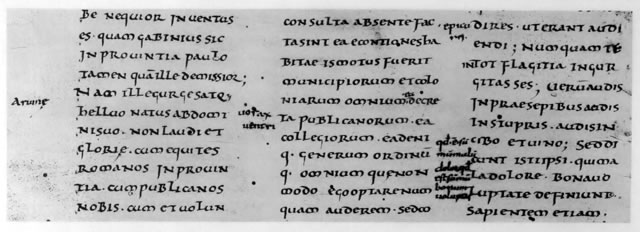 be nequior inventus
es· quam gabinius sic
in provintia paulo
tamen quā ille demissior;
Nam ille gurges atq;
Arvine
helluo natus abdomi
ni suo· non laudi et
glorie· cum equites
romanos in provin
tia· cum publicanos
nobis· cum et volun
consulta absente fac
ta sint ea
bitae is motus fuerit
municipiorum et colo
niarum omnium decre
ta publicanorum· ea
vorax
ventri
collegiorum· ea deni
q· generum ordinū
q· omnium que non
modo ego optare num
quam auderem· sed
dires· ut erant audi
endi; numquam te
in tot flagitia ingur
gitasses; verum audis
in praesepibus audis
in stupris· audis in
cibo et uino; sed di
cunt isti ipsi· qui ma
la dolore· bona u
luptate definiunt
sapientem etiam·